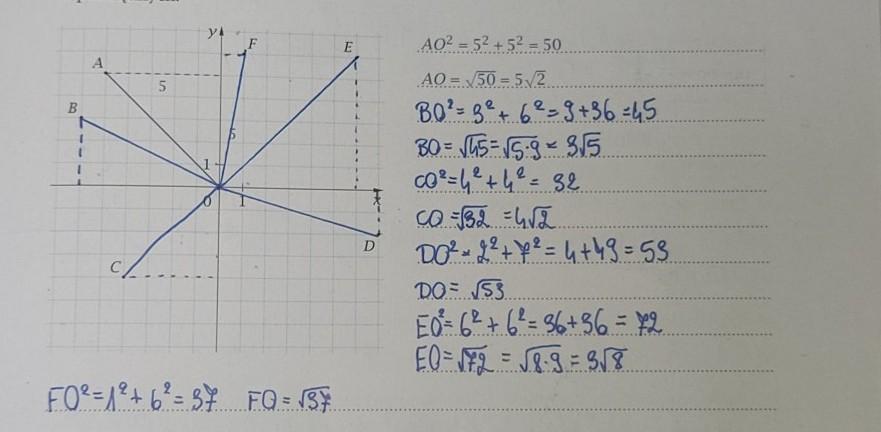 y
F
E
A
5
B
5
1
0
1
x
D
C
AO² = 5² + 5² = 50
AO = √50 = 5√2
BO² = 3² + 6² = 9 + 36 = 45
BO = √45 = √5·9 = 3√5
CO² = 4² + 4² = 32
CO = √32 = 4√2
DO² = 2² + 7² = 4 + 49 = 53
DO = √53
EO² = 6² + 6² = 36 + 36 = 72
EO = √72 = √8·9 = 3√8
FO² = 1² + 6² = 37 FO = √37